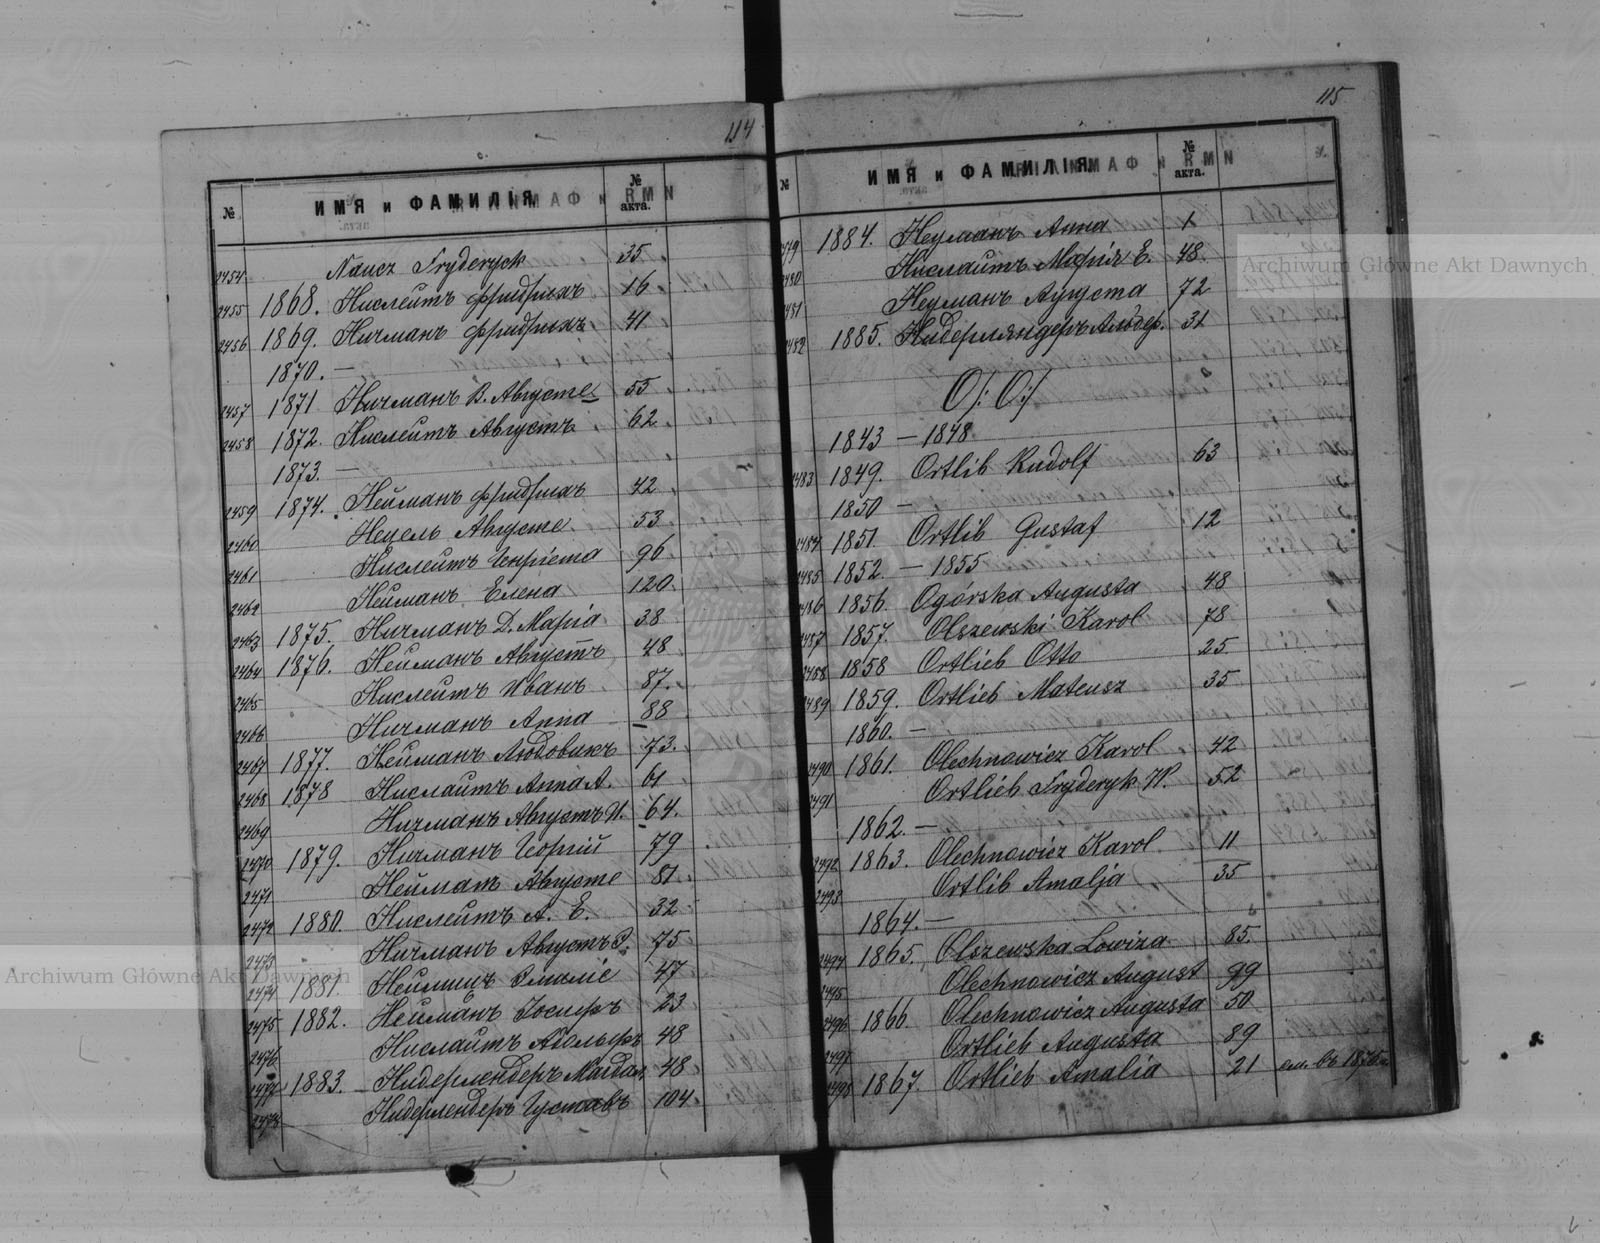 114
№ ИМЯ и ФАМИЛІЯ № акта.
2454 Naucz Fryderyck 35
2455 1868. Нислейтъ Фридрихъ 16
2456 1869. Ничманъ Фридрихъ 41
1870. —
2457 1871 Ничманъ В. Августе 55
2458 1872. Нислейтъ Августъ 62
1873. —
2459 1874. Нейманъ Фридрихъ 42
2460 Нецель Августе 53
2461 Нислейтъ Генріета 96
2462 Нейманъ Елена 120.
2463 1875. Ничманъ Д. Марія 38
2464 1876. Нейманъ Августъ 48
2465 Нислейтъ Иванъ 87.
2466 Ничманъ Анна 88
2467 1877. Нейманъ Людовикъ 73.
2468 1878 Нислаитъ Анна А. 61
2469 Ничманъ Августъ И. 64.
2470 1879. Ничманъ Георгій 79
2471 Нейманъ Августе 81
2472 1880. Нислейтъ А. Е. 32
2473 Ничманъ Августъ 75
2474 1881. Эмиліе 47
2475 1882. Нейманъ Іосифъ 23
2476 Нислаитъ Адольфъ 48
2477 1883. Нидерлендеръ Магдал. 48
2478 Нидерлендеръ Густавъ 104
115
№ ИМЯ и ФАМИЛІЯ № акта.
2479 1884. Неуманъ Анна 1
2480 Нислаитъ Марія Е. 48.
2481 Неуманъ Аугуста 72
2482 1885. Нидерляндеръ Альбер. 31
O/: O:/
1843 — 1848
2483 1849. Ortlib Rudolf 63
1850 —
2484 1851. Ortlib Gustaf 12
2485 1852. — 1855
2486 1856. Ogórska Augusta 48
2487 1857. Olszewski Karol 78
2488 1858 Ortlieb Otto 25
2489 1859. Ortlieb Mateusz 35
1860. —
2490 1861. Olechnowicz Karol 42
2491 Ortlieb Fryderyk W. 52
1862. —
2492 1863. Olechnowicz Karol 11
2493 Ortlib Amalja 35
1864. —
2494 1865. Olszewska Lowiza 85.
2495 Olechnowicz August 99
2496 1866. Olechnowicz Augusta 50
2497 Ortlieb Augusta 89
2498 1867. Ortlieb Amalia 21 см. въ 1876 г.
Archiwum Główne Akt Dawnych
Archiwum Główne Akt Dawnych